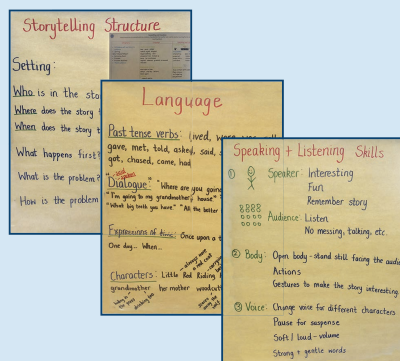 Storytelling Structure
Setting:
Who is in the sto
Where does the story
When does the story t
What happens first?
What is the problem?
How is the problem
Language
Past tense verbs: lived,
gave, met, told, asked, said,
got, chased, came, had
"Dialogue" "Where are you going
"I'm going to my grandmother's house"
"What big teeth you have" "All the better
Expressions of time: Once upon a
One day... When...
Characters: Little Red Riding
grandmother her mother woodcutt
Speaking + Listening Skills
① Speaker: Interesting
Fun
Remember story
Audience: Listen
No messing, talking, etc.
② Body: Open body - stand still facing the audie
Actions
Gestures to make the story interesting
③ Voice: Change voice for different characters
Pause for suspense
Soft / loud - volume
Strong + gentle words